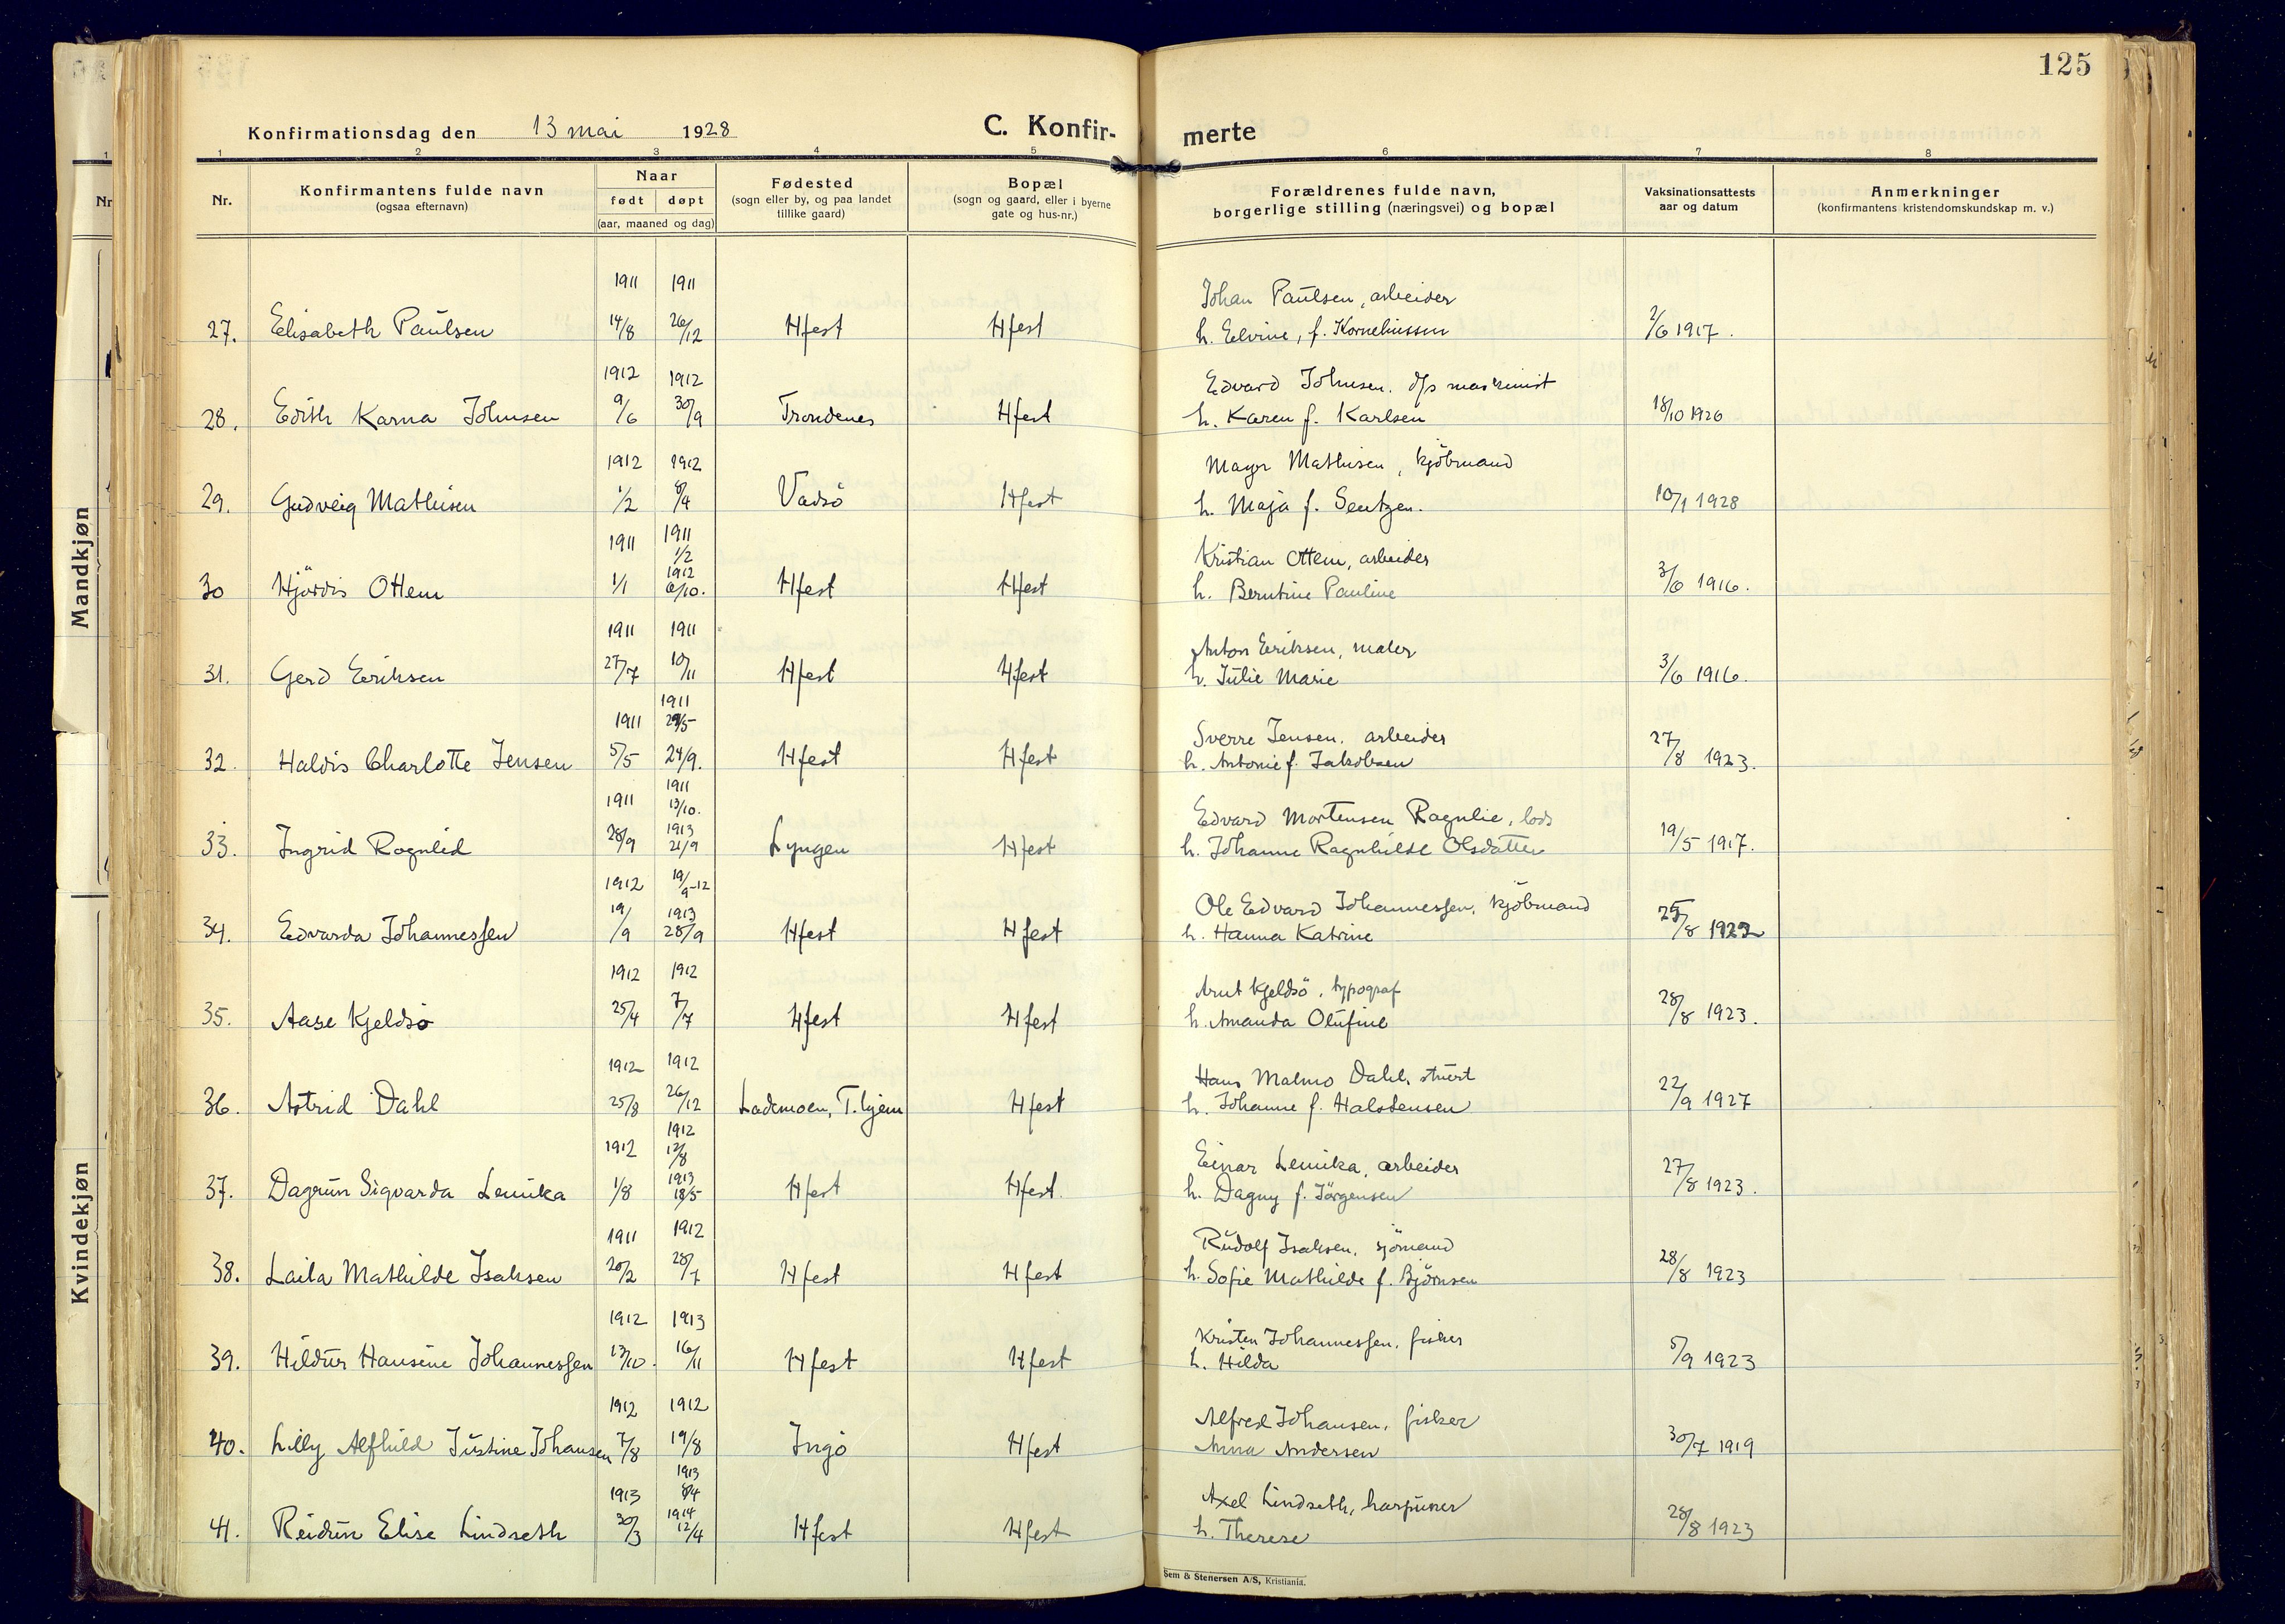 125
Konfirmationsdag den 13 mai 1928
C. Konfir- merte
1 2 3 4 5 6 7 8
Nr. Konfirmantens fulde navn (ogsaa efternavn) Naar født døpt (aar, maaned og dag) Fødested (sogn eller by, og paa landet tillike gaard) Bopæl (sogn og gaard, eller i byerne gate og hus-nr.) Forældrenes fulde navn, borgerlige stilling (næringsvei) og bopæl Vaksinationsattests aar og datum Anmerkninger (konfirmantens kristendomskundskap m. v.)
Nr
Mandkjøn
Kvindekjøn
1911 1911 Johan Paulsen, arbeider
27. Elisabeth Paulsen 14/8 26/12 Hfest Hfest h. Elvine, f. Korneliussen 2/6 1917.
1912 1912 Edvard Johnsen. d/s maskinist
28. Edith Karna Johnsen 9/6 30/9 Trondenes Hfest h. Karen f. Karlsen 18/10 1920
1912 1912 Mathisen, kjöbmand
29. Gudveig Mathisen 1/2 8/4 Vadsö Hfest h. Maja f. 10/1 1928
1911 1911
1/2 Kristian Ottem, arbeider
1912
30 Hjördis Ottem 1/1 6/10. Hfest Hfest h. Berntine Pauline 3/6 1916.
1911 1911 Anton Eriksen, maler
31. Gerd Eriksen 27/7 10/11 Hfest Hfest h. Julie Marie 3/6 1916.
1911
1911 29/5 Sverre Jensen. arbeider
32. Haldis Charlotte Jensen 5/5 24/9. Hfest Hfest h. Antonie f. Jakobsen 27/8 1923.
1911
1911 13/10. Edvard Mortensen Ragnlie, lods
1913
33. Ingrid Rognlid 28/9 21/9 Lyngen Hfest h. Johanne Ragnhilde Olsdatter 19/5 1917.
1912 19/9-12 Ole Edvard Johannessen, kjöbmand
1913
34. Edvarda Johannessen 19/9 28/9 Hfest Hfest h. Hanna Katrine 25/8 1922
1912 1912 Arnt Kjeldsö, typograf
35. Aase Kjeldsö 25/4 7/7 Hfest Hfest h. Amanda Olufine 28/8 1923.
1912 1912 Hans Malmo Dahl, stuert
36. Astrid Dahl 25/8 26/12 Lademoen, T.hjem Hfest h. Johanne f. Halstensen 22/9 1927
1912
1912 12/8 Einar Lemika, arbeider
1913
37. Dagrun Sigvarda Lemika 1/8 18/5 Hfest Hfest. h. Dagny f. Jörgensen 27/8 1923.
1911 1912 Rudolf Isaksen, sjömand
38. Laila Mathilde Isaksen 20/2 28/7 Hfest Hfest h. Sofie Mathilde f. Björnsen 28/8 1923
1912 1913 Kristen Johannessen, fisker
39. Hildur Hansine Johannessen 13/10. 16/11 Hfest Hfest h. Hilda 5/9 1923
1912 1912 Alfred Johansen, fisker
40. Lilly Alfhild Justine Johansen 7/8 19/8 Ingö Hfest Anna Andersen 30/7 1919
1913
1913 8/4 Axel Lindseth, harpuner
1914
41. Reidun Elise Lindseth 30/3 12/4 Hfest Hfest h. Therese 28/8 1923
Sem & Stenersen A/S, Kristiania.